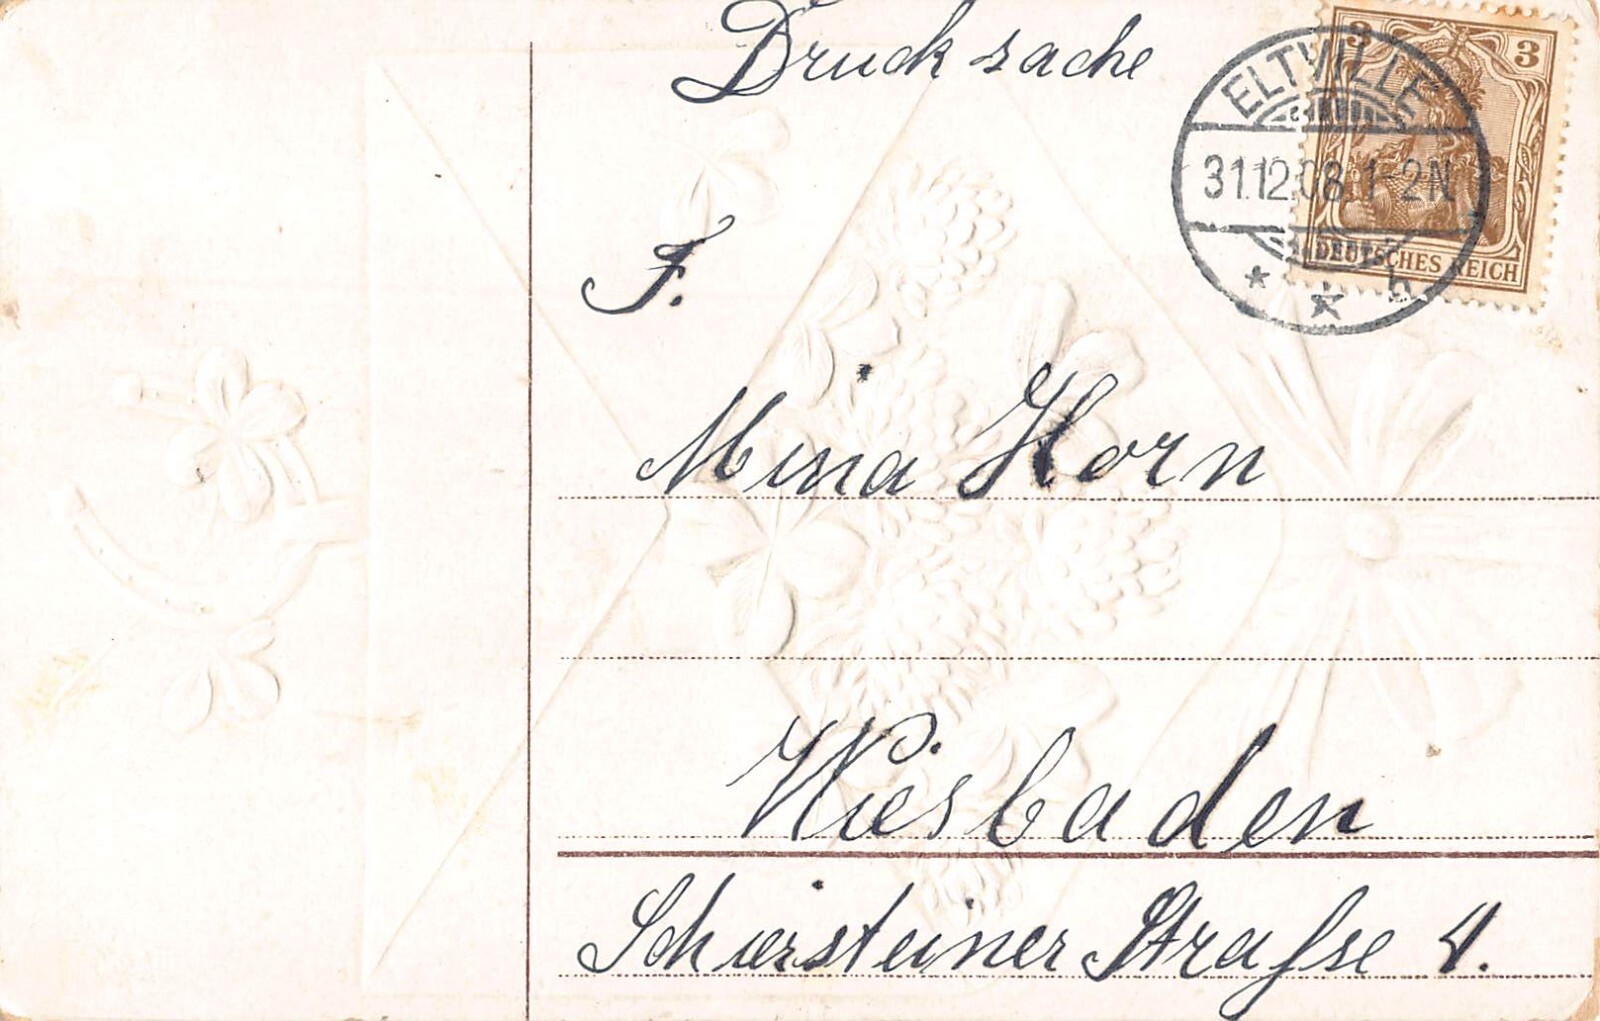 Drucksache
3 3
ELTVILLE
31.12.08 1-2N
DEUTSCHES REICH
* * b
F.
Mina Horn
Wiesbaden
Schiersteiner Straße 4.